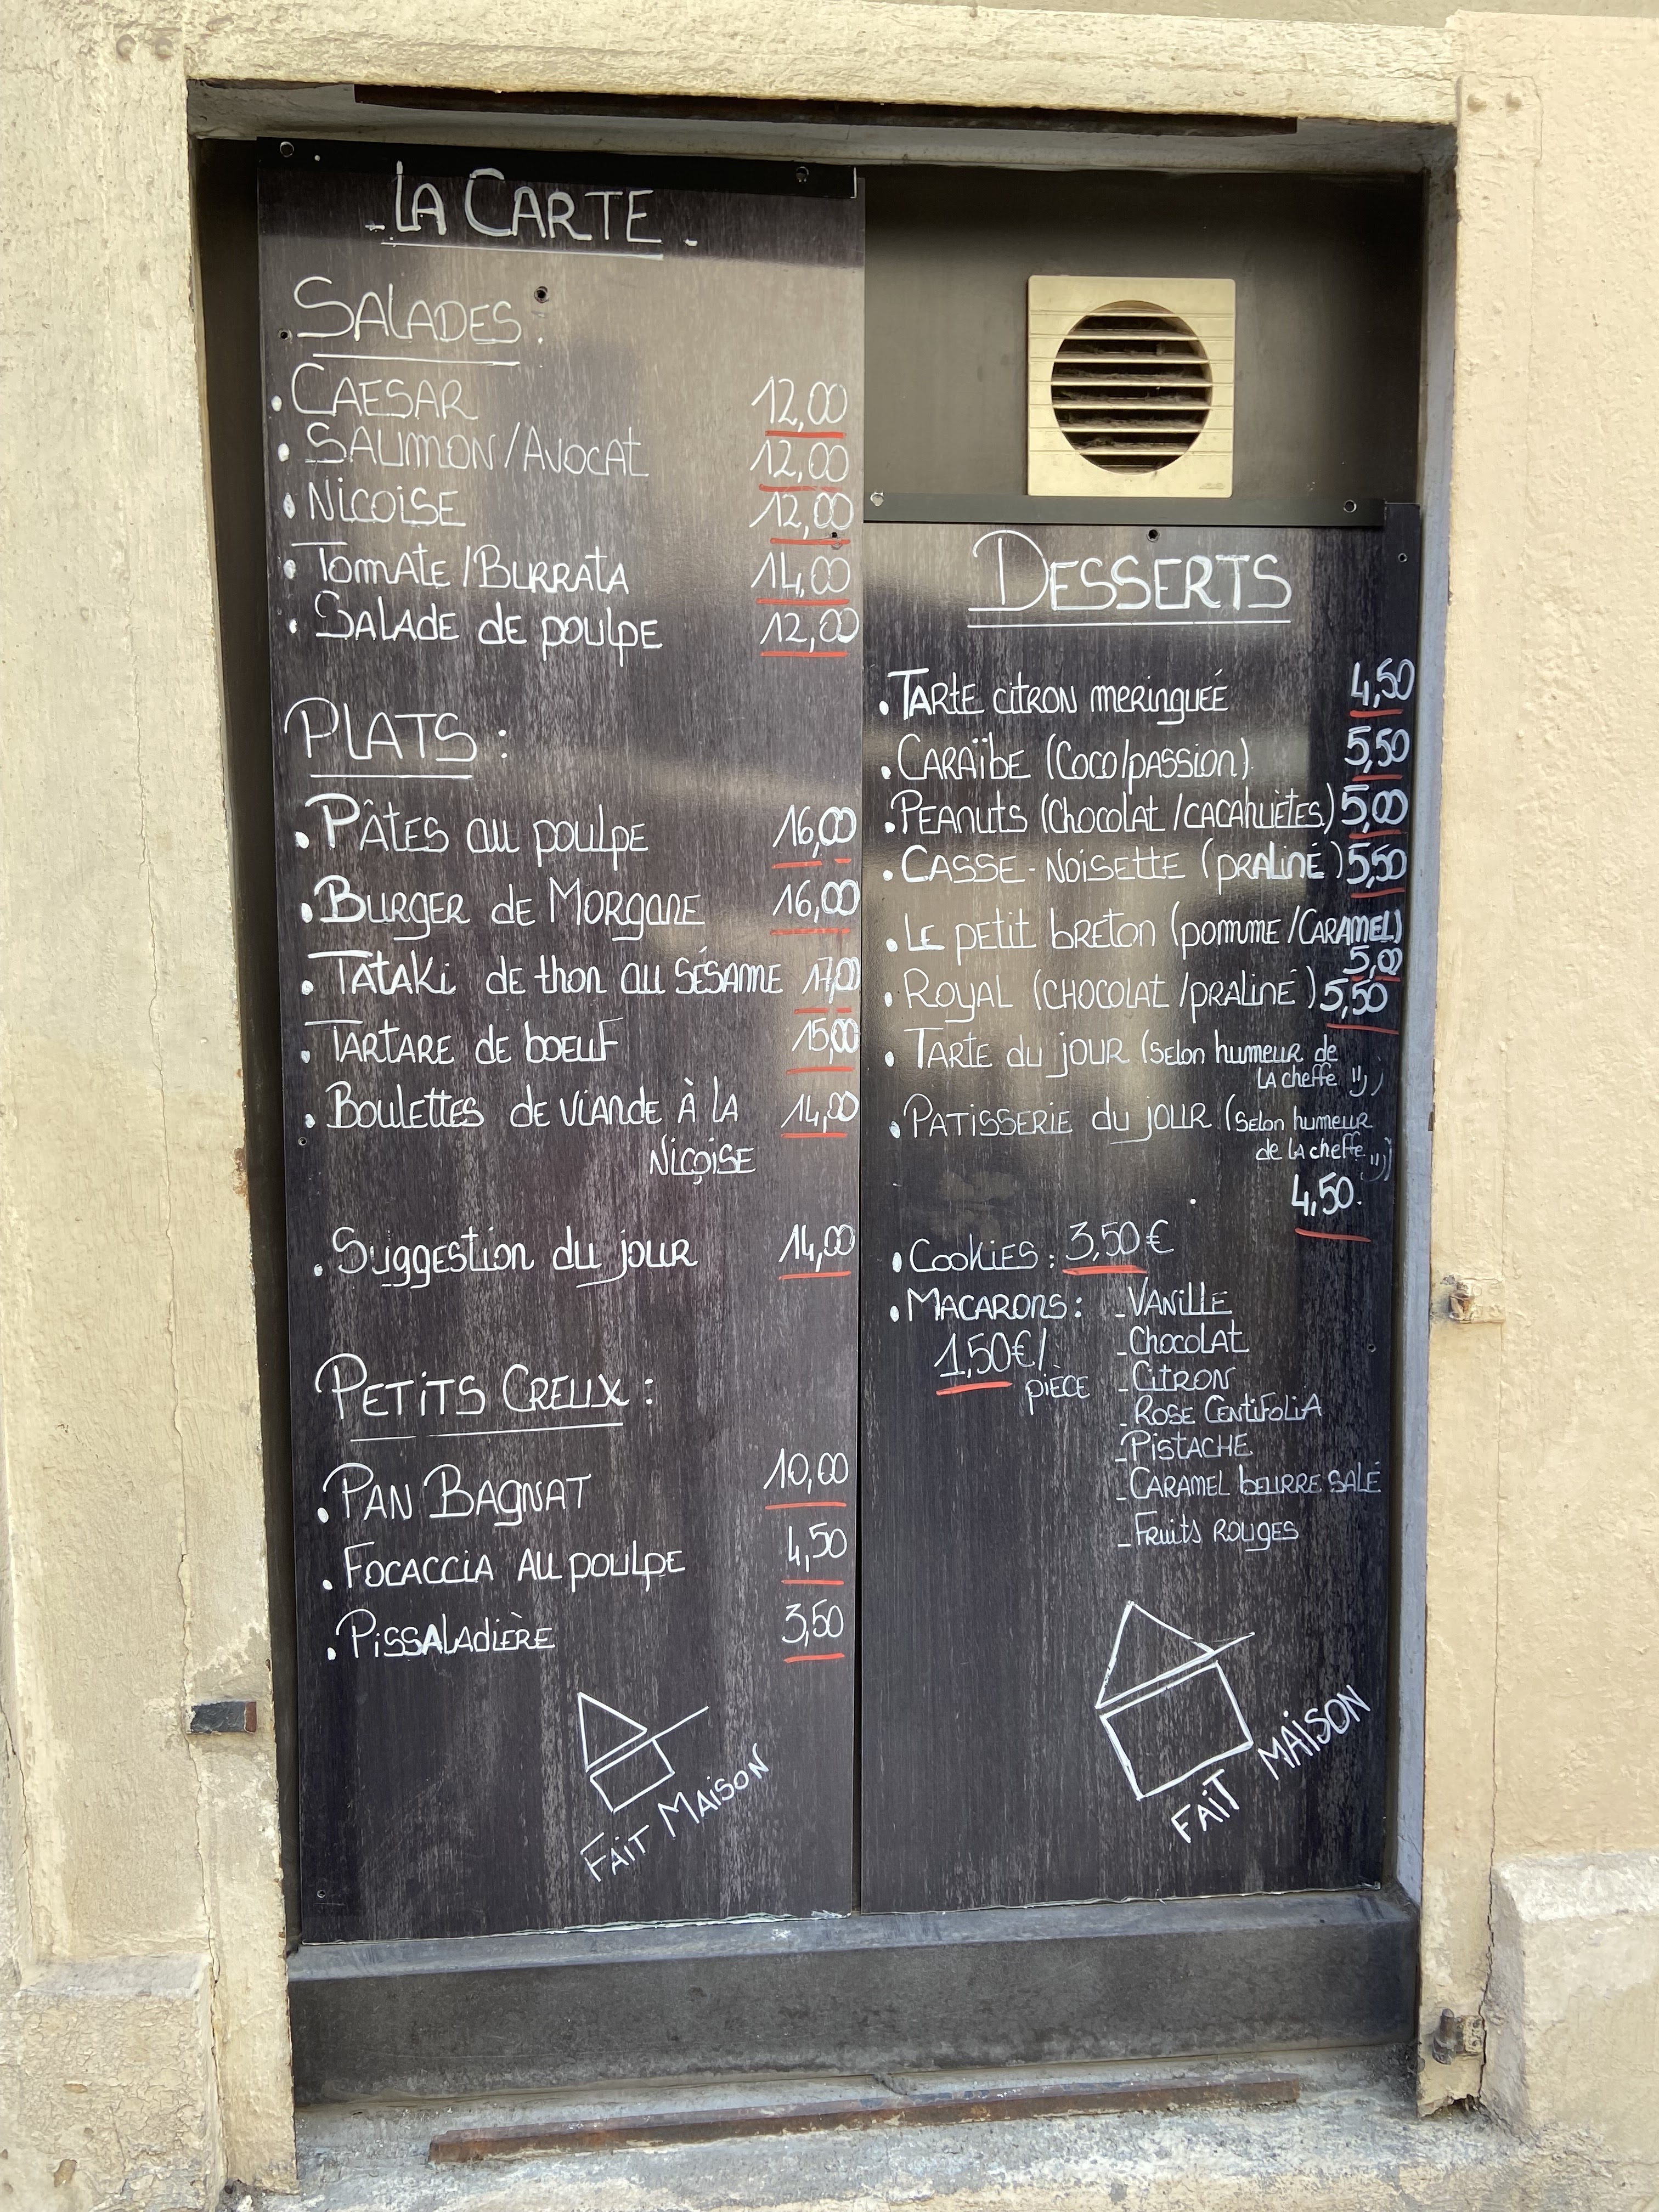 - LA CARTE -
SALADES :
• CAESAR 12,00
• SAUMON/AVOCAT 12,00
• NICOISE 12,00
• TOMATE/BURRATA 14,00
• SALADE de poulpe 12,00
PLATS :
• PÂTES au poulpe 16,00
• BURGER de MORGANE 16,00
• TATAKI de thon au SÉSAME 17,00
• TARTARE de boeuf 15,00
• Boulettes de viande À LA 14,00
NIÇOISE
• Suggestion du jour 14,00
PETITS CREUX :
• PAN BAGNAT 10,00
• FOCACCIA AU poulpe 4,50
• PISSALADIÈRE 3,50
FAIT MAISON
DESSERTS
• TARTE citron meringueé 4,50
• CARAÏBE (Coco/passion) 5,50
• PEANUTS (Chocolat/cacahuètes) 5,00
• CASSE-NOISETTE (PRALINÉ) 5,50
• LE petit breton (pomme/CARAMEL)
5,00
• ROYAL (CHOCOLAT/PRALINÉ) 5,50
• TARTE du jOUR (Selon humeur de
LA cheffe ") )
• PATISSERIE du jOUR (Selon humeur
de LA cheffe "))
4,50.
• Cookies : 3,50 €
• MACARONS : - VANILLE
1,50€/ - Chocolat
pièce - Citron
- ROSE CENTIFOLIA
- PISTACHE
- CARAMEL beurre SALÉ
- Fruits ROUGES
FAIT MAISON